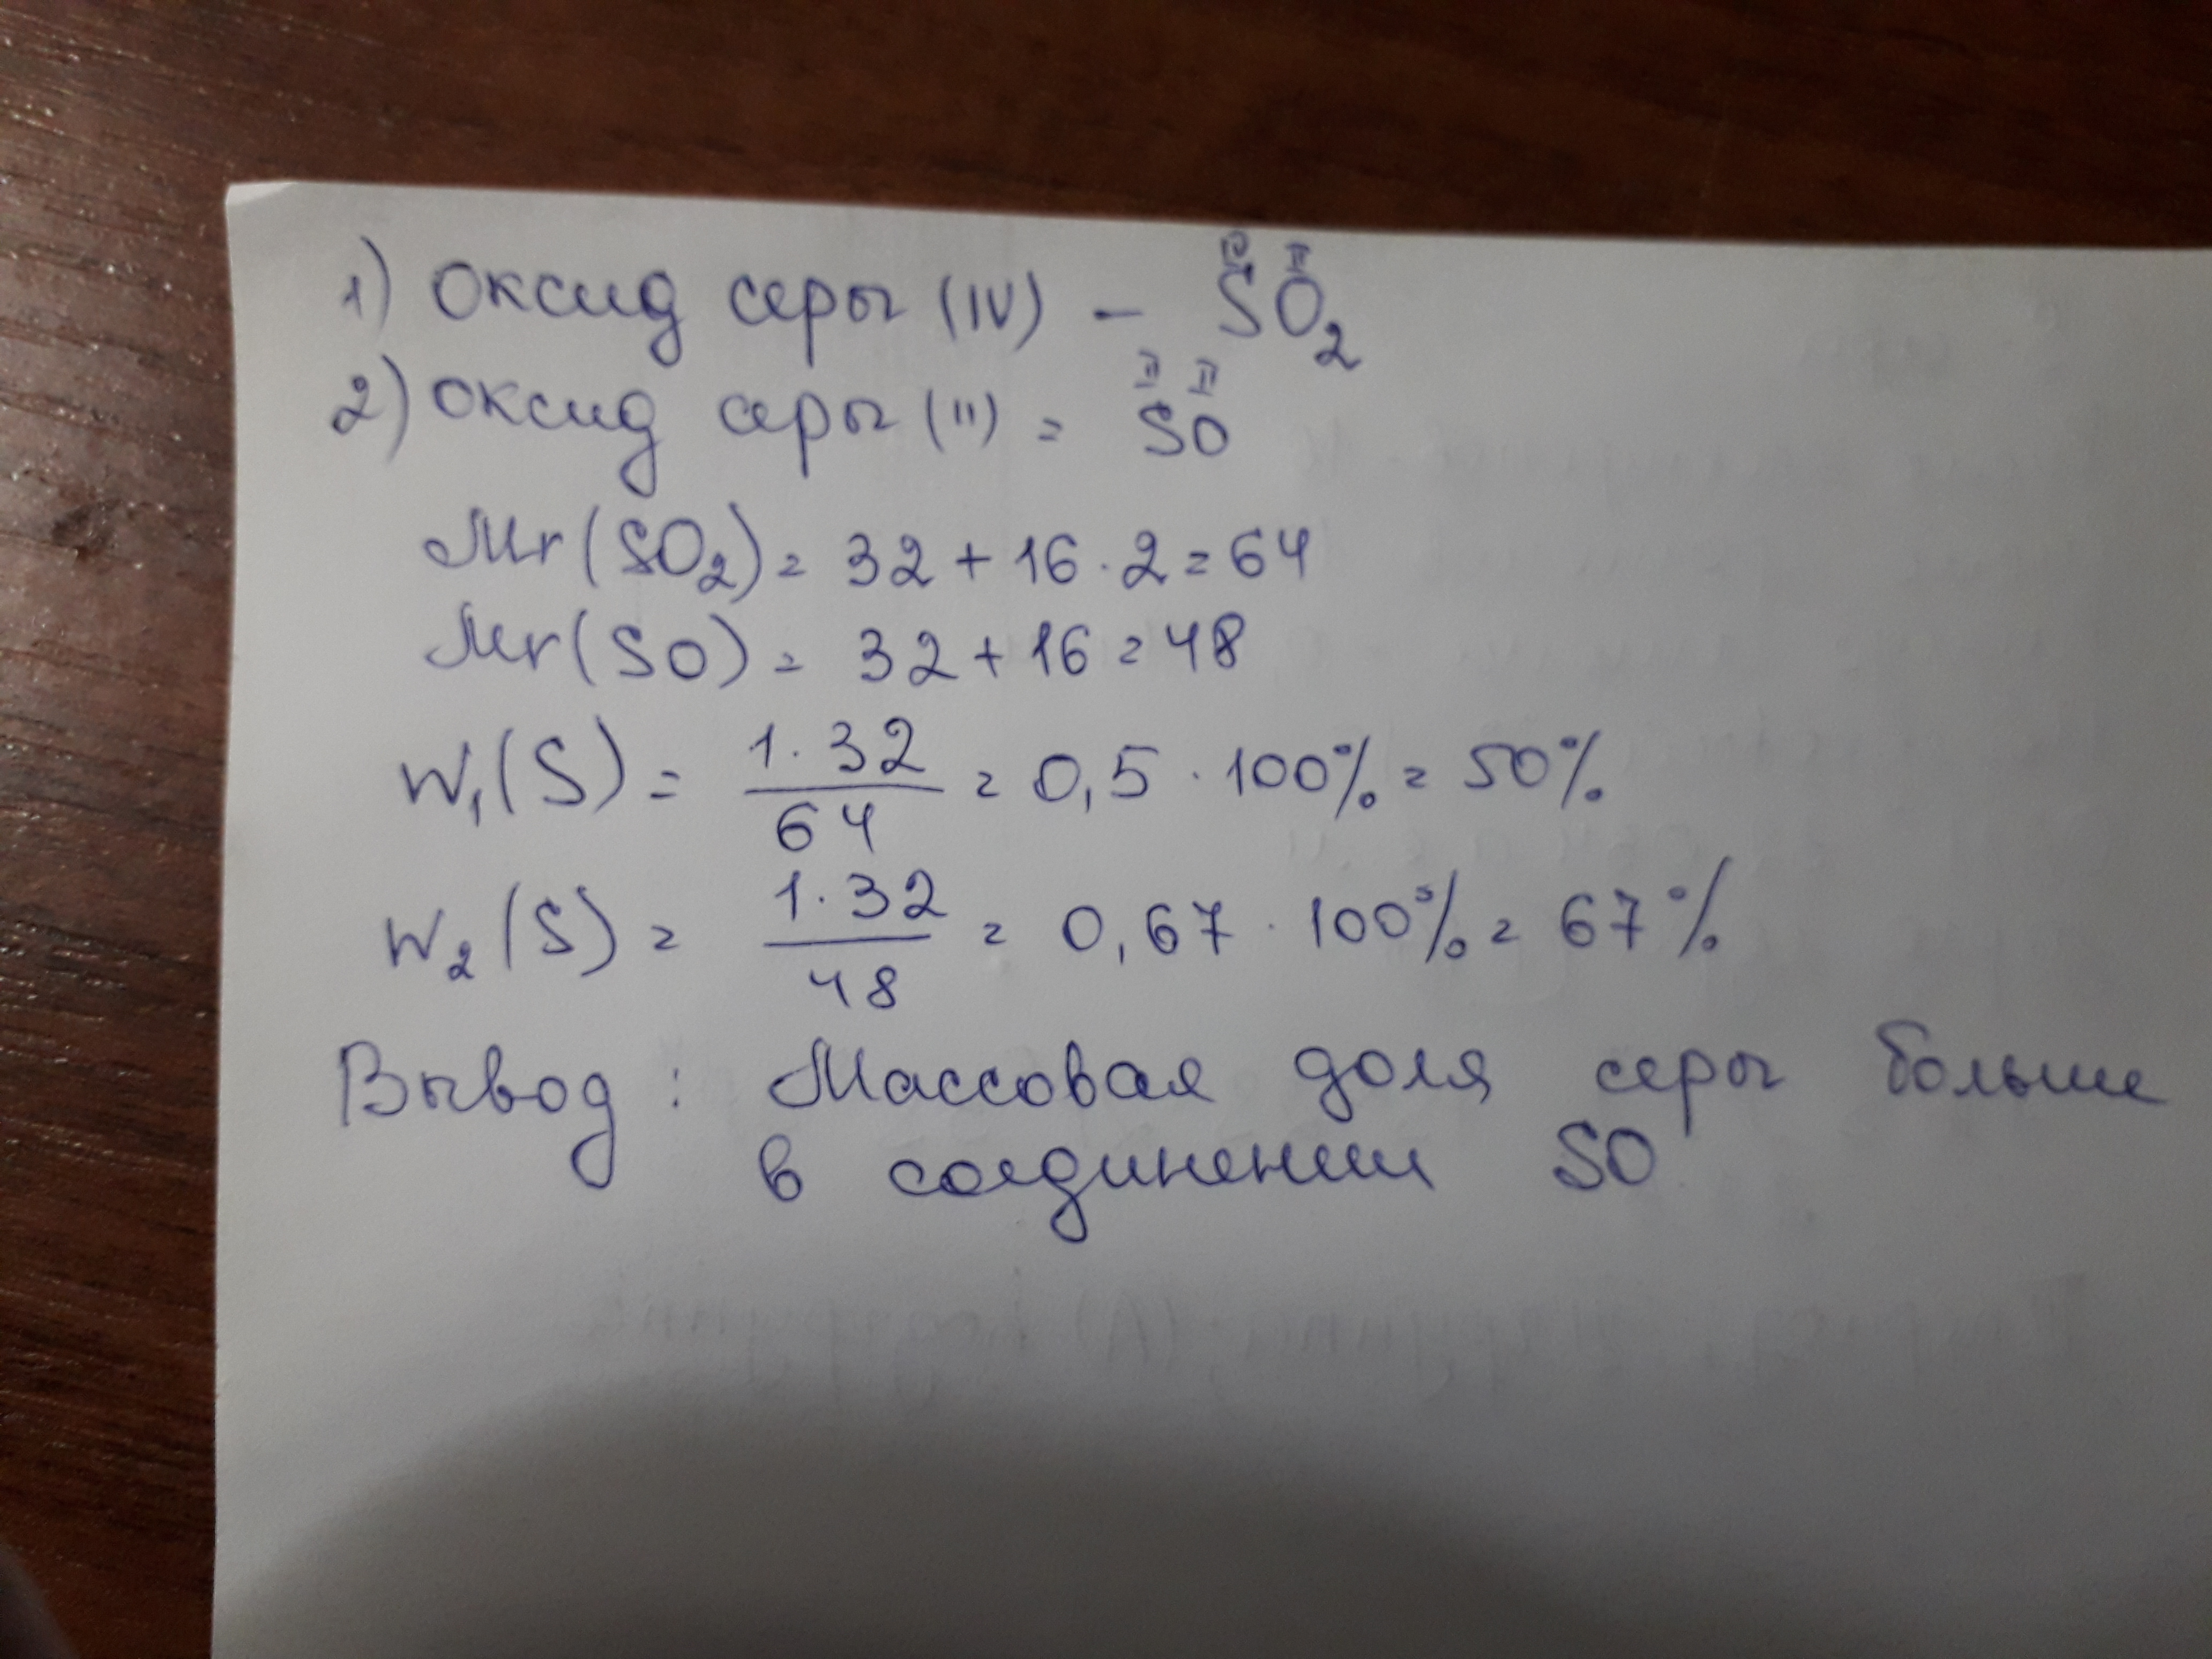 1) Оксид серы (IV) – SO₂
IV II
2) Оксид серы (II) = SO
II II
Mr(SO₂) = 32 + 16 · 2 = 64
Mr(SO) = 32 + 16 = 48
W₁(S) = 1·32/64 = 0,5 · 100% = 50%
W₂(S) = 1·32/48 = 0,67 · 100% = 67%
Вывод: Массовая доля серы больше
в соединении SO